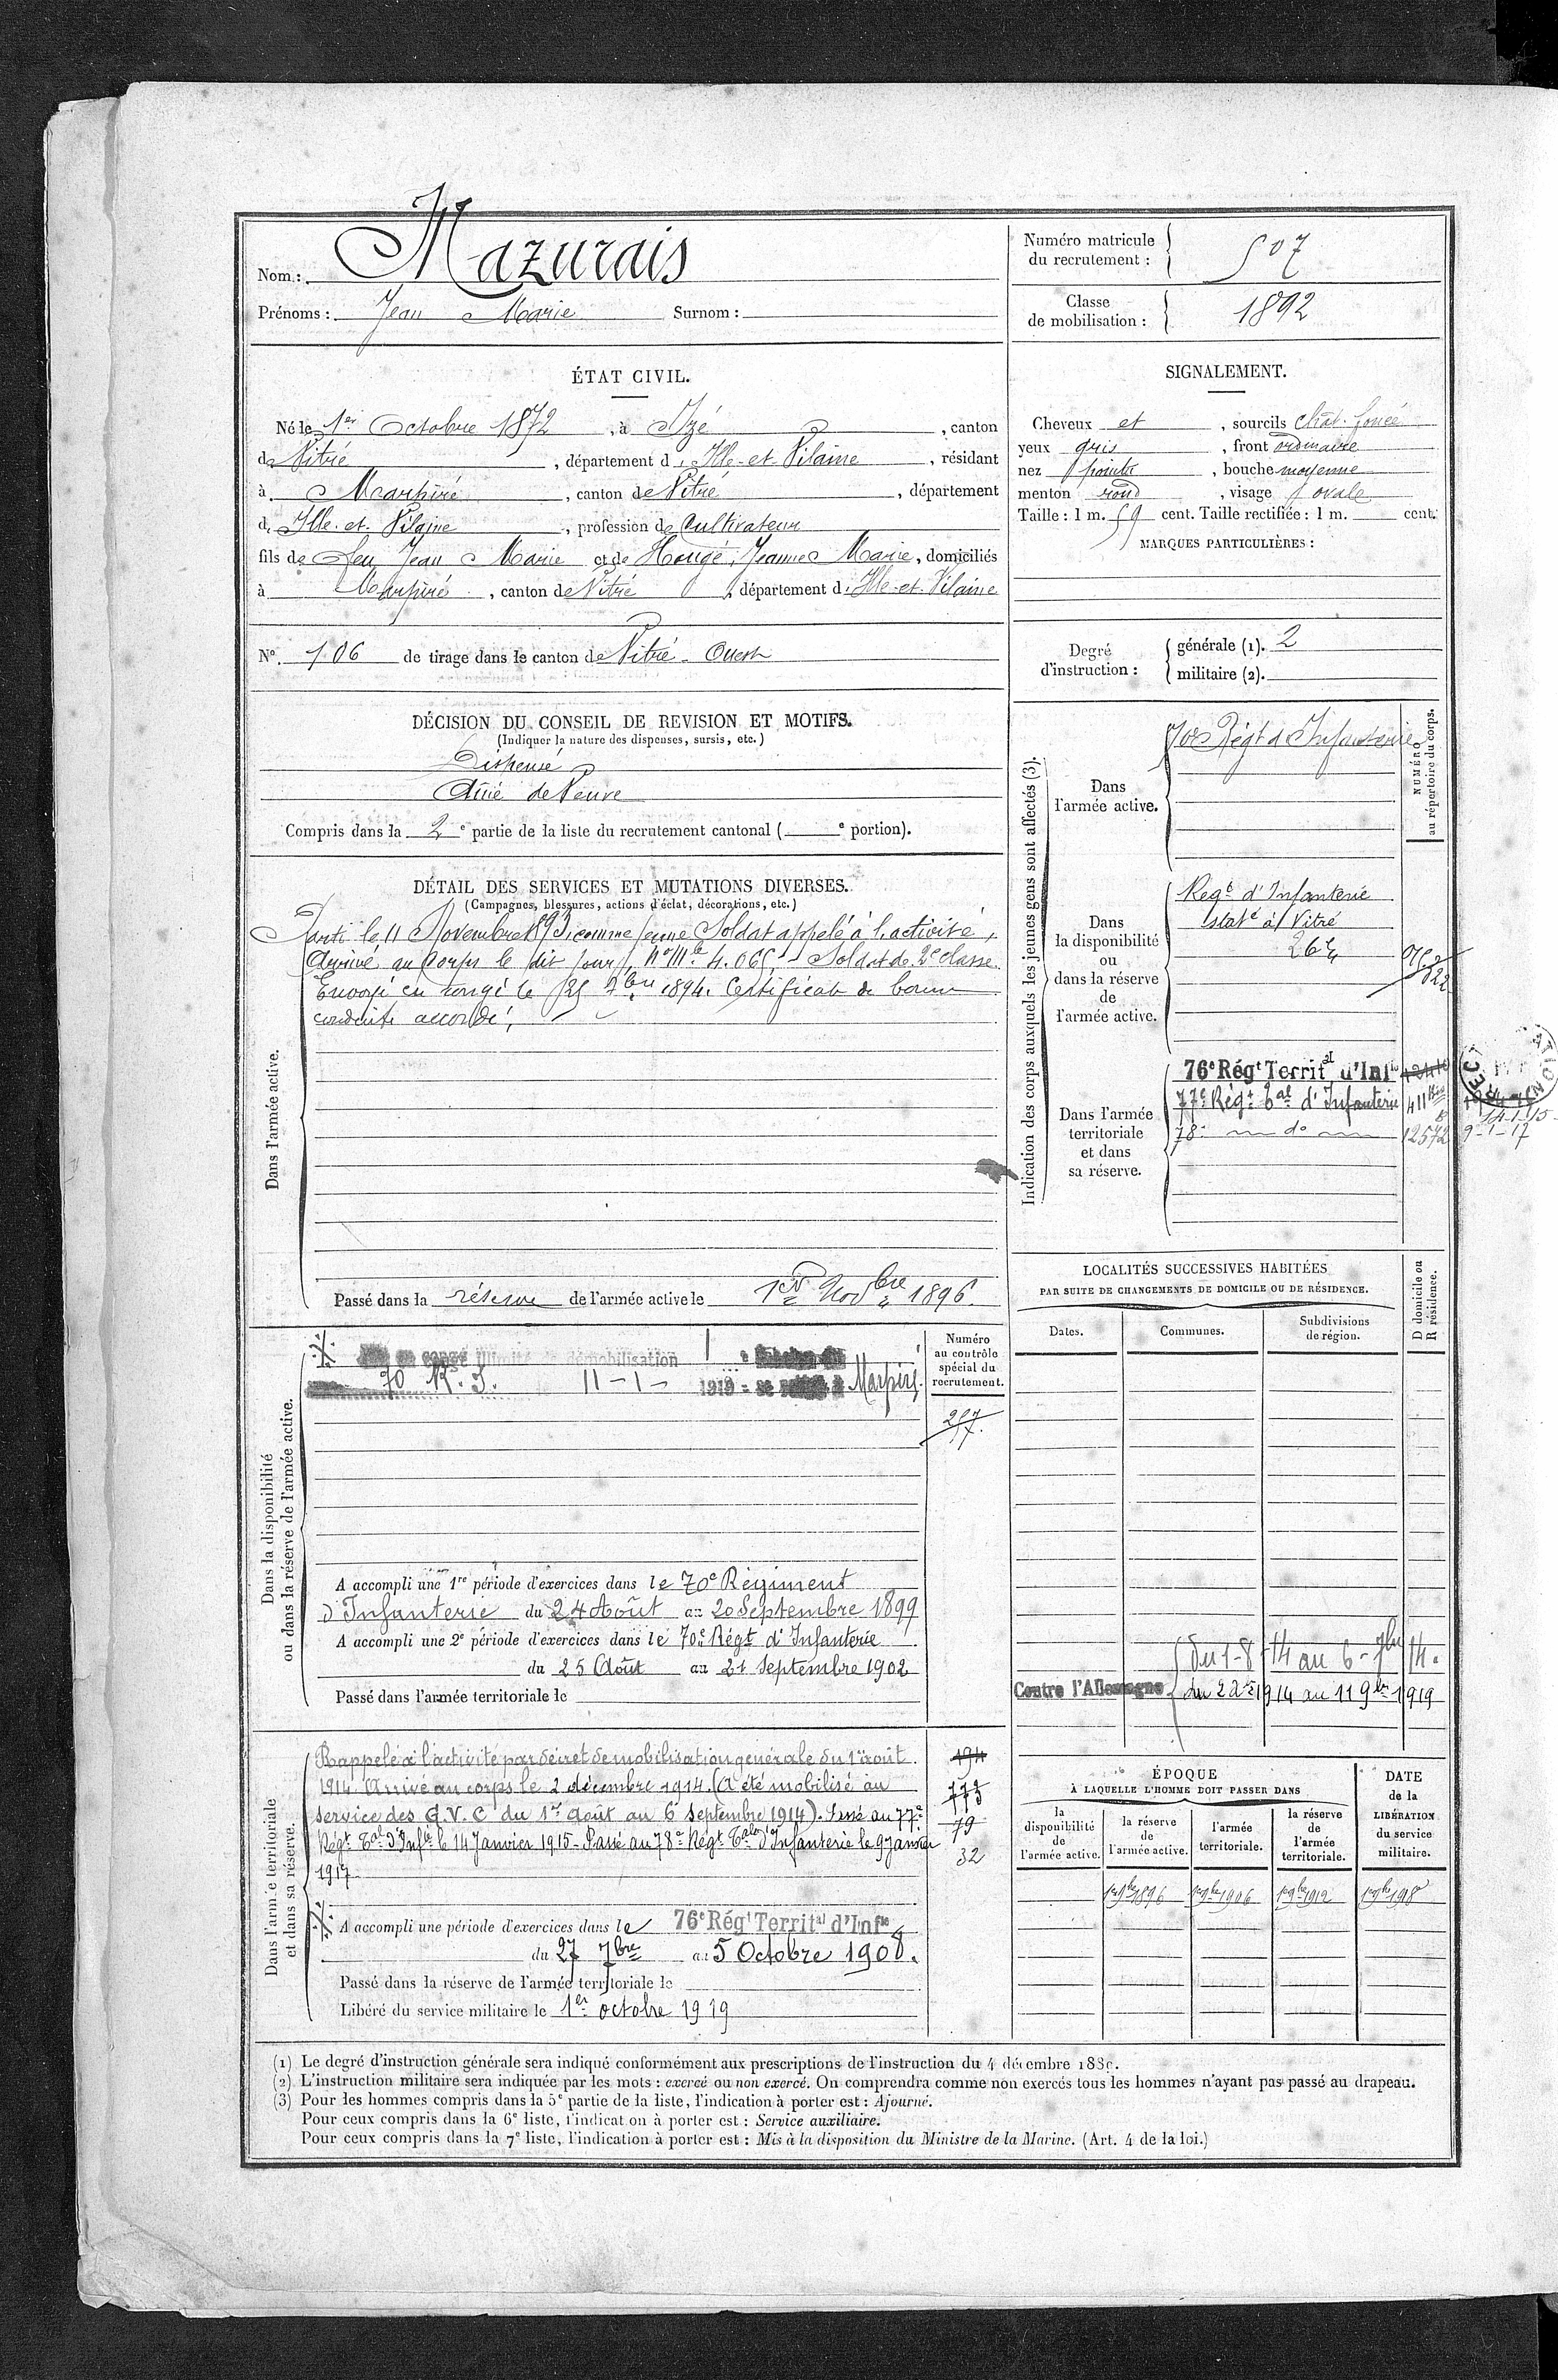 Nom : Mazurais
Prénoms : Jean Marie Surnom :
Numéro matricule du recrutement : 507
Classe de mobilisation : 1892
ÉTAT CIVIL.
Né le 1er Octobre 1872, à Izé, canton
de Vitré, département d'Ille-et-Vilaine, résidant
à Marpiré, canton de Vitré, département
d'Ille-et-Vilaine, profession de Cultivateur
fils de feu Jean Marie et de Hougé, Jeanne Marie, domiciliés
à Marpiré, canton de Vitré, département d'Ille-et-Vilaine
N° 106 de tirage dans le canton de Vitré-Ouest
SIGNALEMENT.
Cheveux et, sourcils chât. foncé
yeux gris, front ordinaire
nez pointu, bouche moyenne
menton rond, visage ovale
Taille : 1 m. 59 cent. Taille rectifiée : 1 m. cent.
MARQUES PARTICULIÈRES :
Degré d'instruction : générale (1). 2
militaire (2).
DÉCISION DU CONSEIL DE REVISION ET MOTIFS.
(Indiquer la nature des dispenses, sursis, etc.)
Dispensé
Ainé de Veuve
Compris dans la 2e partie de la liste du recrutement cantonal ( e portion).
DÉTAIL DES SERVICES ET MUTATIONS DIVERSES.
(Campagnes, blessures, actions d'éclat, décorations, etc.)
Dans l'armée active.
Parti le 11 Novembre 1893, comme jeune Soldat appelé à l'activité,
Arrivé au Corps le dit jour, n° Mle 4.065. Soldat de 2e classe.
Envoyé en congé le 25 7bre 1894. Certificat de bonne
conduite accordé.
Passé dans la réserve de l'armée active le 1er Novbre 1896.
Indication des corps auxquels les jeunes gens sont affectés (3).
NUMÉRO au répertoire du corps.
Dans l'armée active.
70e Régt d'Infanterie
Dans la disponibilité ou dans la réserve de l'armée active.
Regt d'Infanterie
statné à Vitré
Dans l'armée territoriale et dans sa réserve.
76e Régt Territal d'Infie
77e Régt Tal d'Infanterie
14-1-15
78e do 12572 9-1-17
LOCALITÉS SUCCESSIVES HABITÉES
PAR SUITE DE CHANGEMENTS DE DOMICILE OU DE RÉSIDENCE.
Dates. Communes. Subdivisions de région. D domicile ou R résidence.
Du 1-8-14 au 6-7bre 14.
Contre l'Allemagne du 2 Xbre 1914 au 11 9bre 1919
Dans la disponibilité ou dans la réserve de l'armée active.
Numéro au contrôle spécial du recrutement.
en congé illimité de démobilisation
70 R.I. 11-1-1919 = se Marpiré
257
A accompli une 1re période d'exercices dans le 70e Régiment
d'Infanterie du 24 Août au 20 Septembre 1899
A accompli une 2e période d'exercices dans le 70e Régt d'Infanterie
du 25 Août au 21 septembre 1902
Passé dans l'armée territoriale le
Dans l'armée territoriale et dans sa réserve.
Rappelé à l'activité par décret de mobilisation générale du 1er août
1914. Arrivé au corps le 2 décembre 1914. (A été mobilisé au
service des G.V.C du 1er août au 6 septembre 1914). Passé au 77e
Régt Tal d'Infie le 14 Janvier 1915 - Passé au 78e Régt Tal d'Infanterie le 9 Janvier
1917
194
773
79
32
A accompli une période d'exercices dans le 76e Régt Territal d'Infie
du 27 7bre au 5 Octobre 1908.
Passé dans la réserve de l'armée territoriale le
Libéré du service militaire le 1er octobre 1919
ÉPOQUE
À LAQUELLE L'HOMME DOIT PASSER DANS
la disponibilité de l'armée active. la réserve de l'armée active. l'armée territoriale. la réserve de l'armée territoriale.
DATE de la LIBÉRATION du service militaire.
1er 9bre 1896 1er 9bre 1906 1er 9bre 1912
(1) Le degré d'instruction générale sera indiqué conformément aux prescriptions de l'instruction du 4 décembre 1889.
(2) L'instruction militaire sera indiquée par les mots : exercé ou non exercé. On comprendra comme non exercés tous les hommes n'ayant pas passé au drapeau.
(3) Pour les hommes compris dans la 5e partie de la liste, l'indication à porter est : Ajourné.
Pour ceux compris dans la 6e liste, l'indication à porter est : Service auxiliaire.
Pour ceux compris dans la 7e liste, l'indication à porter est : Mis à la disposition du Ministre de la Marine. (Art. 4 de la loi.)